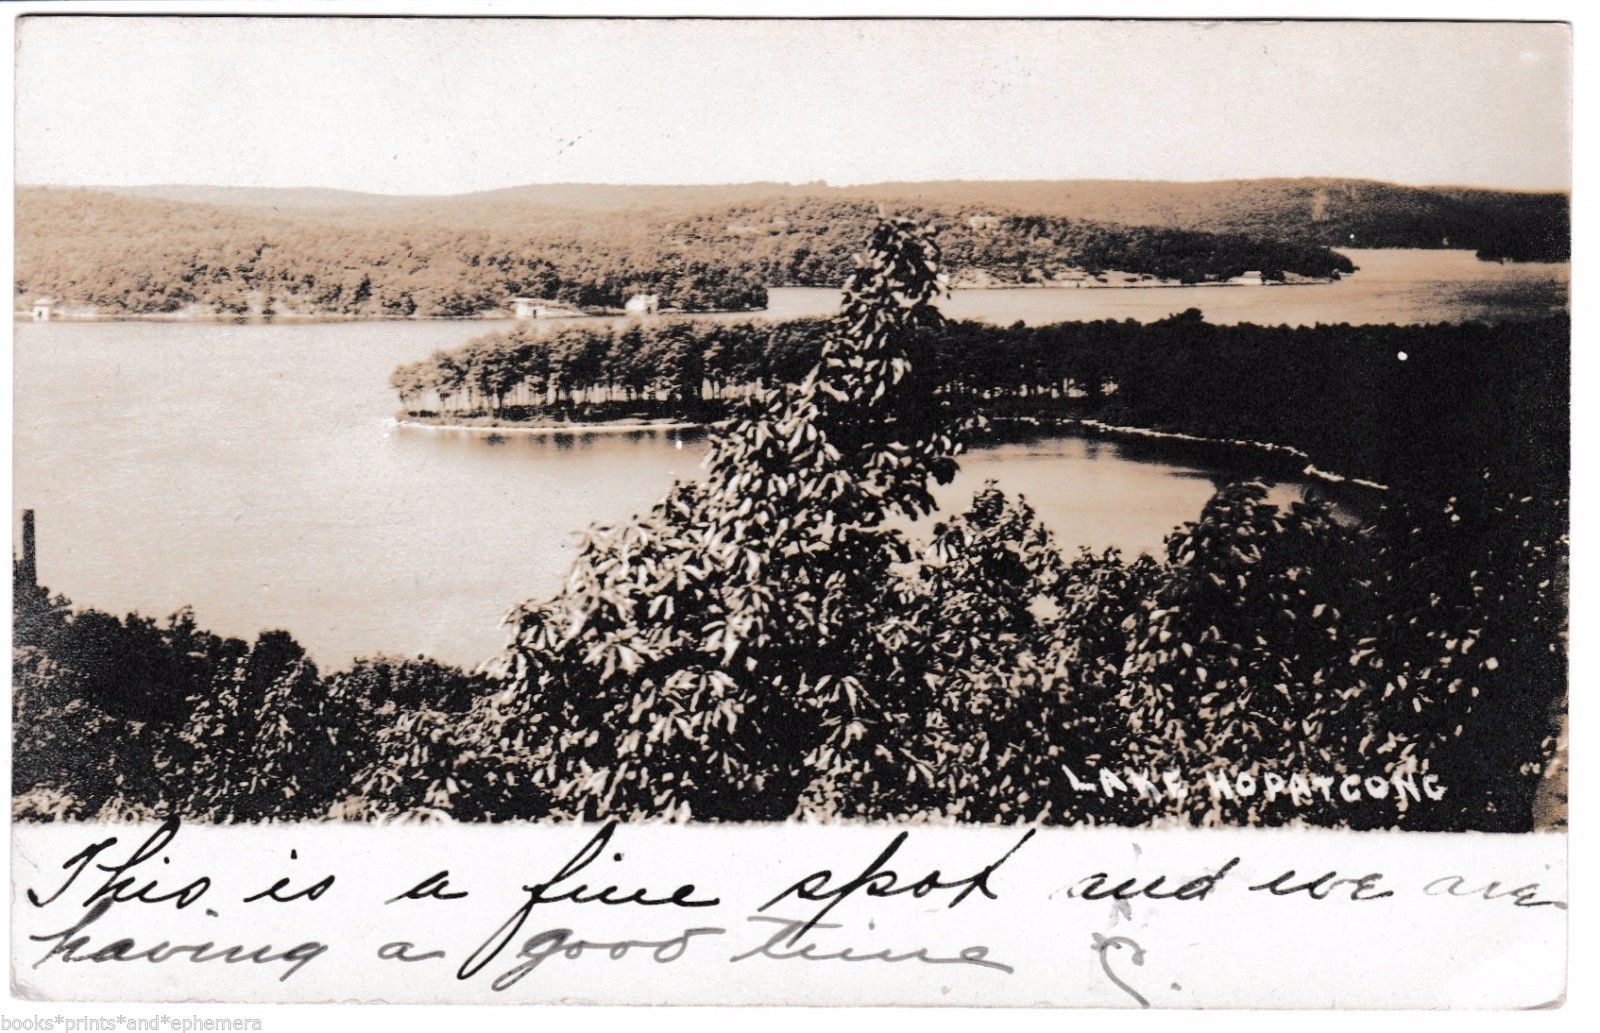 LAKE HOPATCONG
This is a fine spot and we are
having a good time
books*prints*and*ephemera